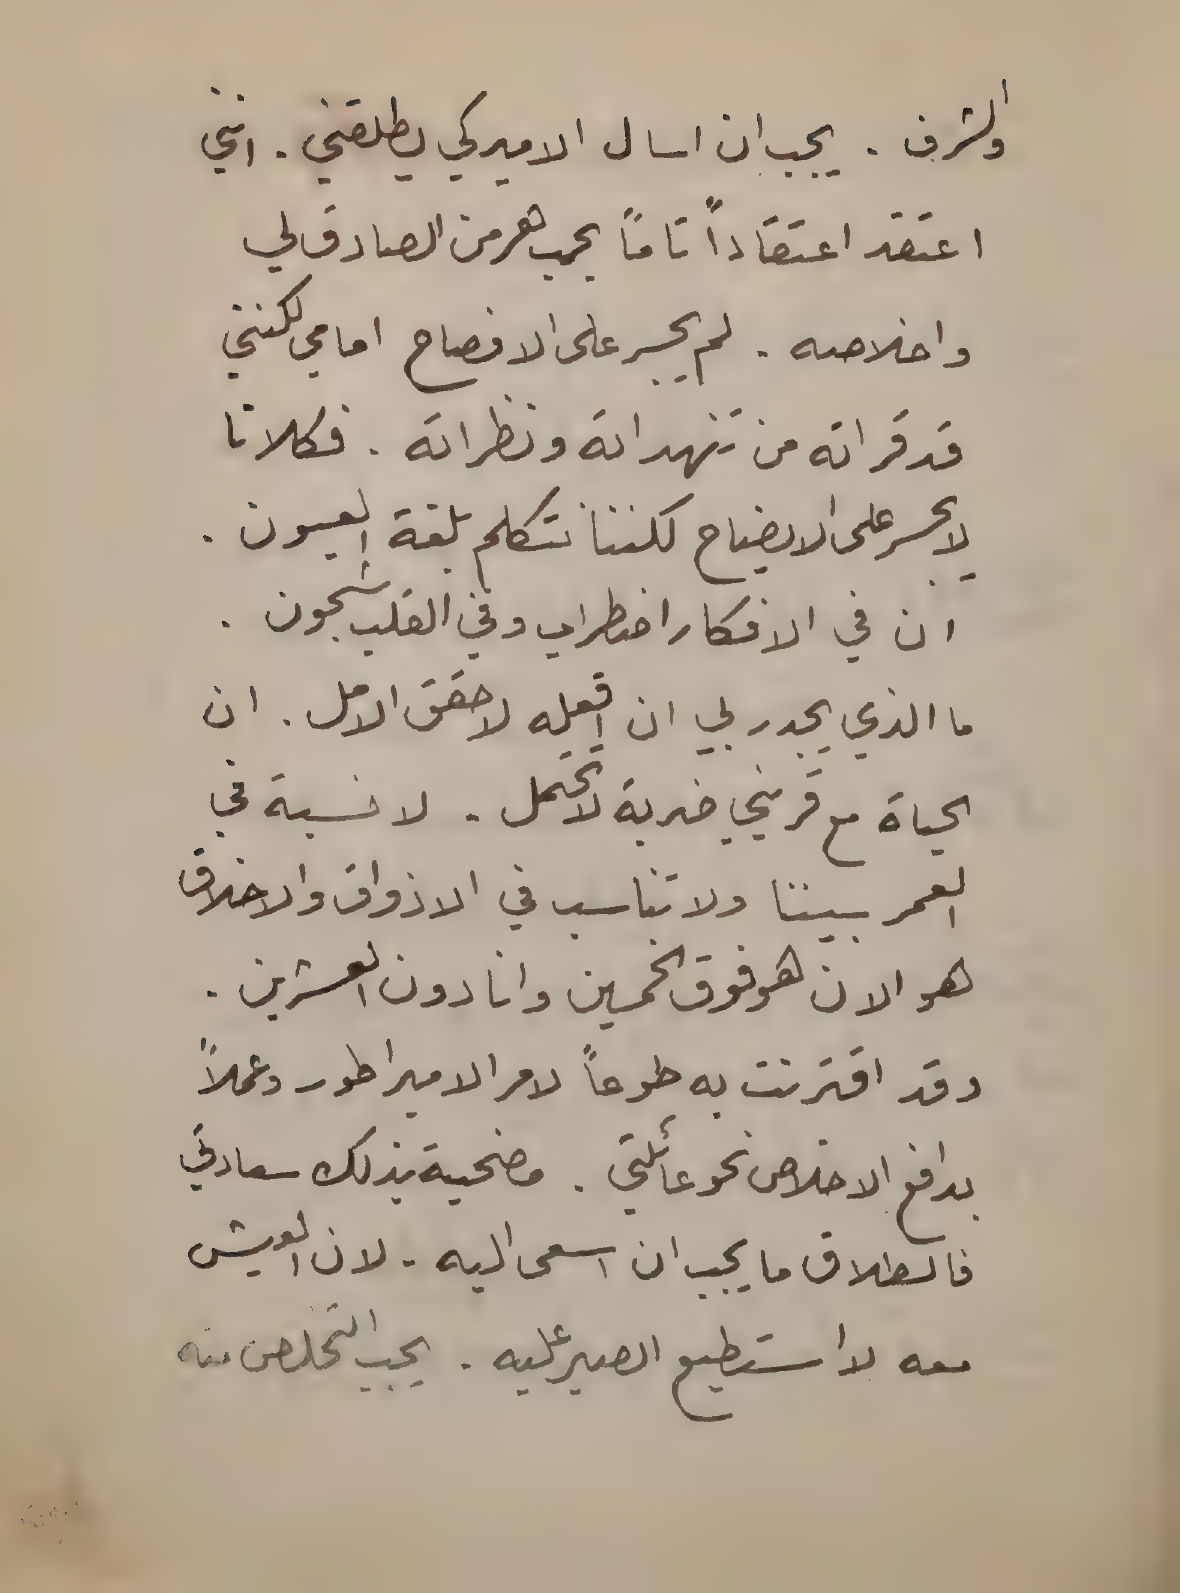 والشرف . يجب ان اسال الاميركي يطلقني . انني
اعتقد اعتقاداً تاماً بحب هرمن الصادق لي
واخلاصه . لم يجسر على الافصاح امامي لكنني
قد قراته من تنهداته ونظراته . فكلانا
لا يجسر على الايضاح لكننا نتكلم بلغة العيون .
ان في الافكار اضطراب وفي القلب شجون .
ما الذي يجدر بي ان افعله لاحقق الامل . ان
الحياة مع قريني ضربة لا تحتمل . لا نسبة في
العمر بيننا ولا تناسب في الاذواق والاخلاق
هو الان هو فوق الخمسين وانا دون العشرين .
وقد اقترنت به طوعاً لامر الامبراطور وعملاً
بدافع الاخلاص نحو عائلتي . مضحية بذلك سعادتي
فالطلاق ما يجب ان اسعى اليه . لان العيش
معه لا استطيع الصبر عليه . يجب التخلص منه